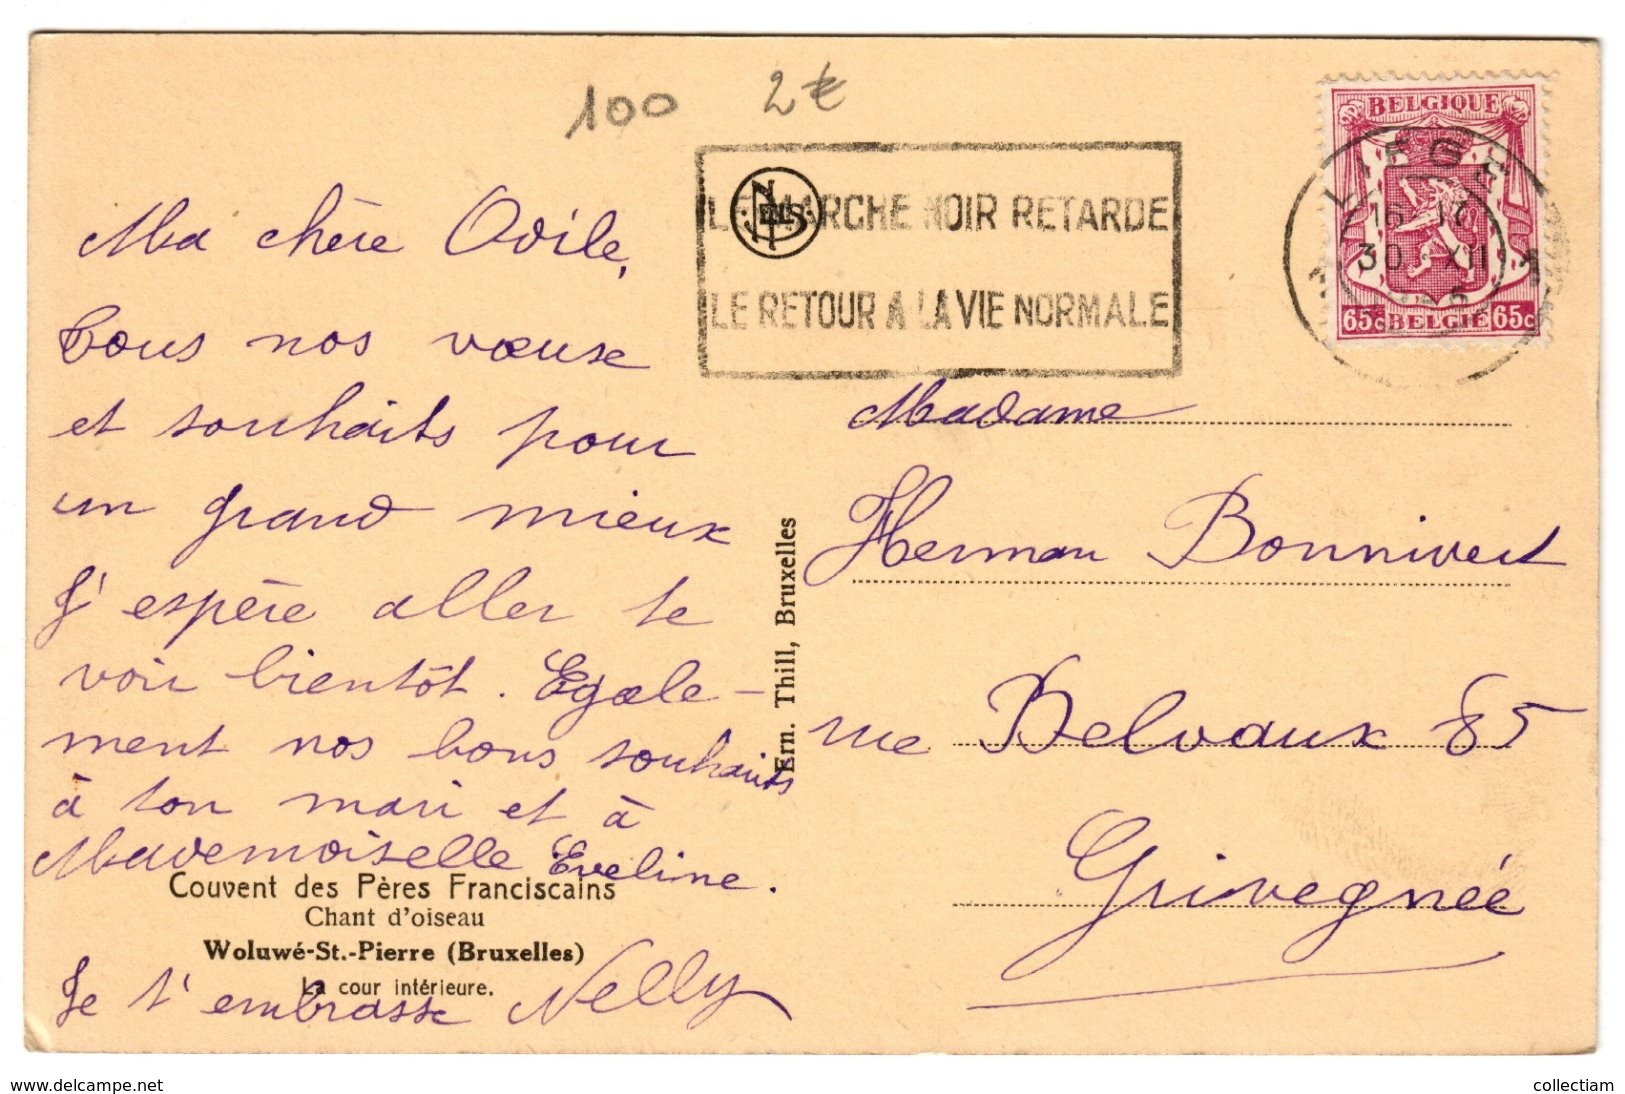 100 2€
LE MARCHE NOIR RETARDE
LE RETOUR A LA VIE NORMALE
BELGIQUE
LIEGE 1
16-17
30 XII
65c BELGIË 65c
Ma chère Odile,
Tous nos vœux
et souhaits pour
un grand mieux
J'espère aller te
voir bientôt. Egale-
ment nos bons souhaits
à ton mari et à
Mademoiselle Eveline.
Je t'embrasse Nelly
Couvent des Pères Franciscains
Chant d'oiseau
Woluwé-St.-Pierre (Bruxelles)
La cour intérieure.
Ern. Thill, Bruxelles
Madame
Herman Bonnivert
rue Belvaux 85
Grivegnée
www.delcampe.net
collectiam